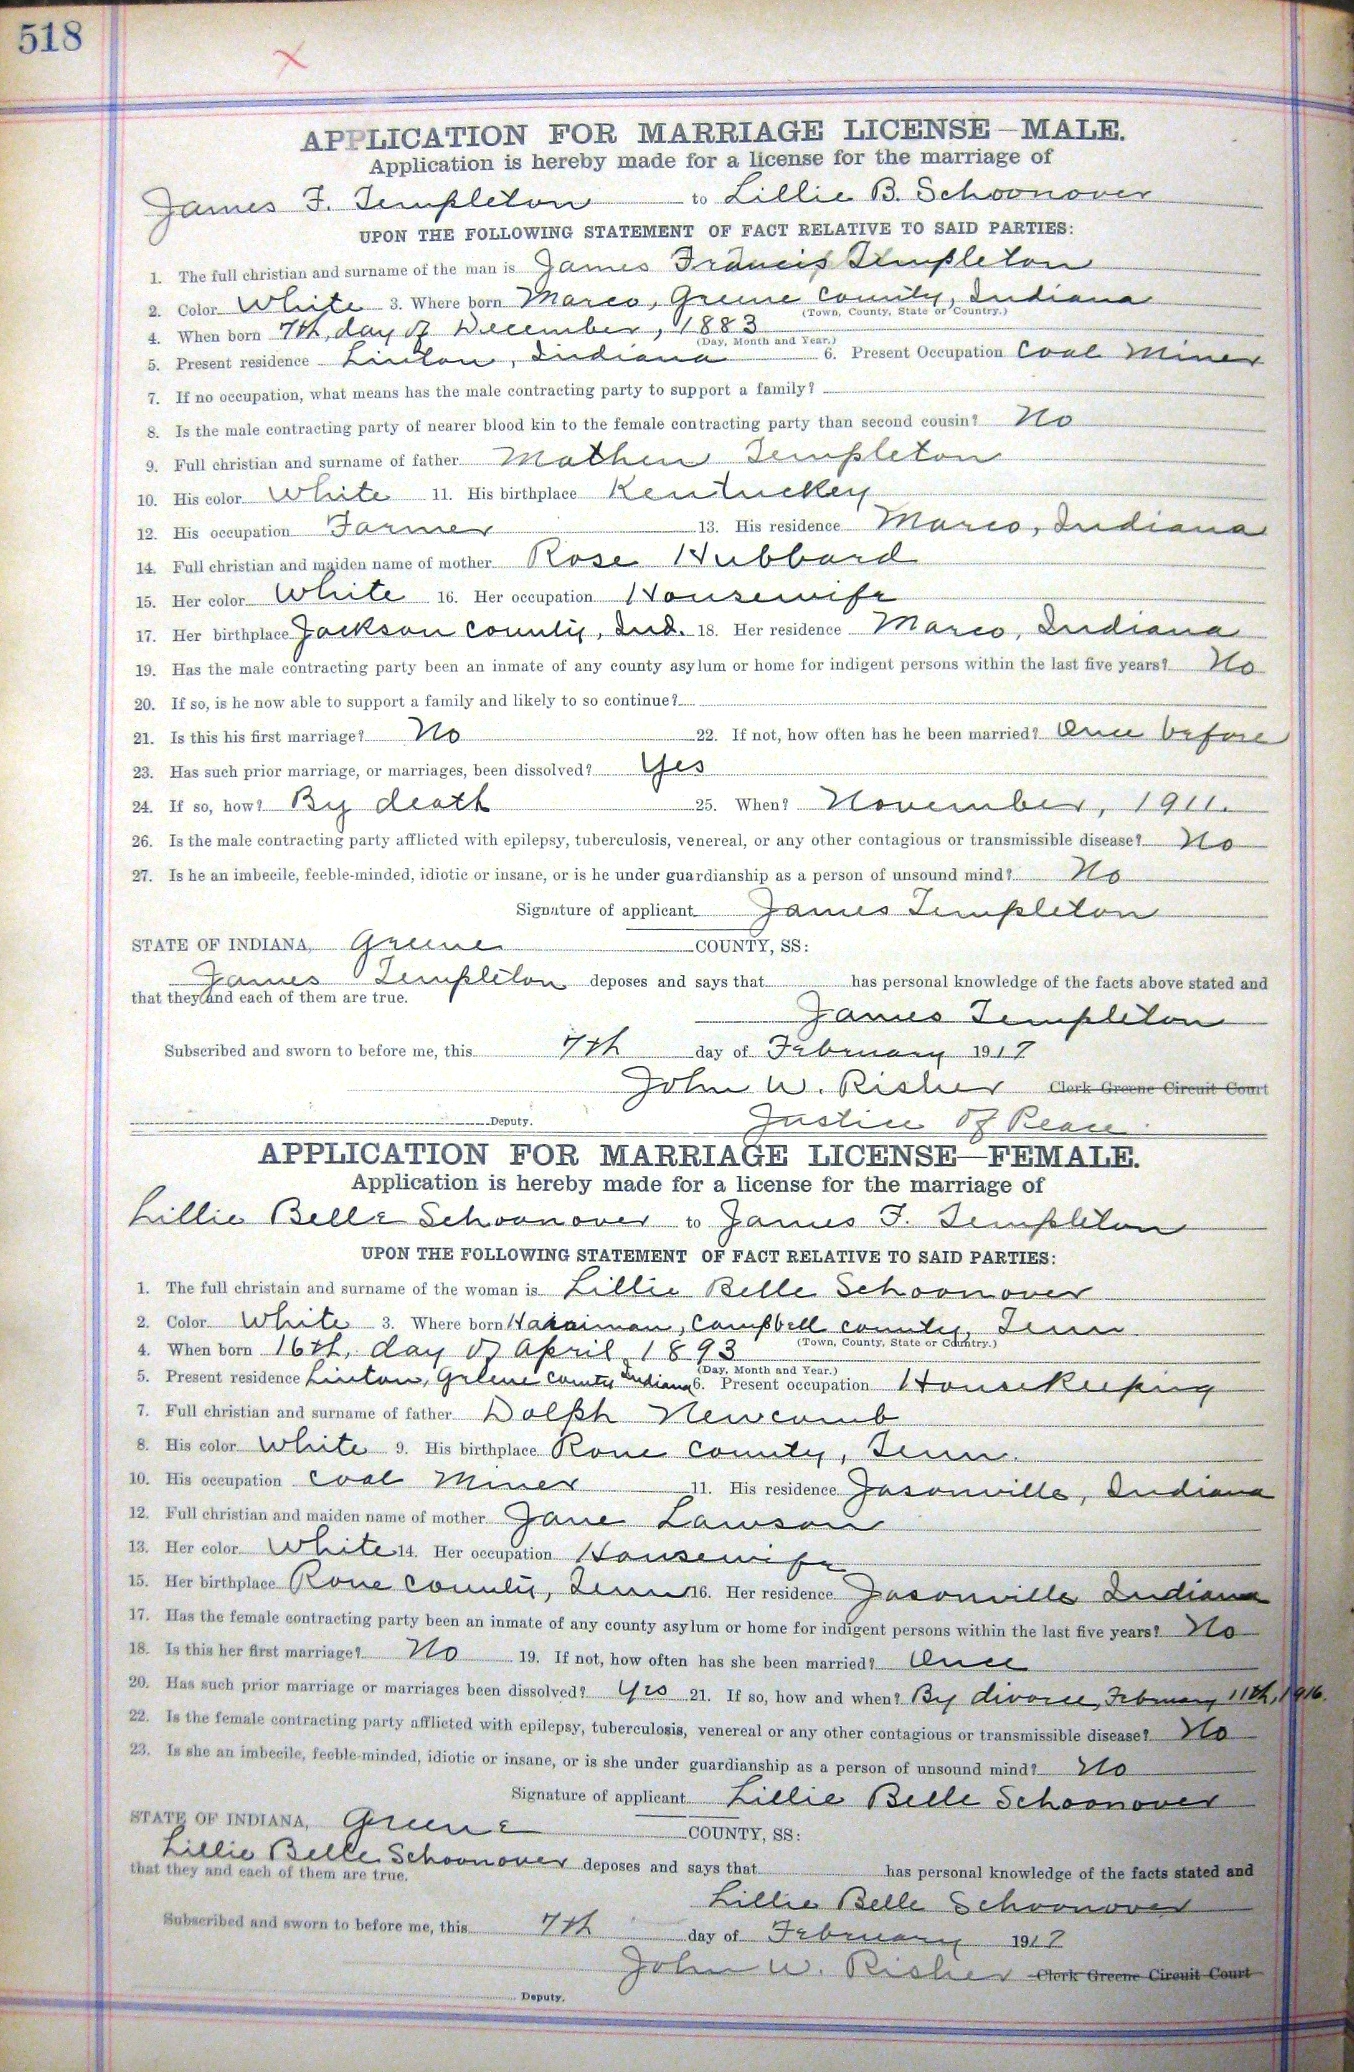 518
APPLICATION FOR MARRIAGE LICENSE—MALE.
Application is hereby made for a license for the marriage of
James F. Templeton to Lillie B. Schoonover
UPON THE FOLLOWING STATEMENT OF FACT RELATIVE TO SAID PARTIES:
1. The full christian and surname of the man is James Francis Templeton
2. Color White 3. Where born Marco, Greene County, Indiana
(Town, County, State or Country.)
4. When born 7th, day of December, 1883
(Day, Month and Year.)
5. Present residence Linton, Indiana 6. Present Occupation Coal Miner
7. If no occupation, what means has the male contracting party to support a family?
8. Is the male contracting party of nearer blood kin to the female contracting party than second cousin? No
9. Full christian and surname of father Mathew Templeton
10. His color White 11. His birthplace Kentuckey
12. His occupation Farmer 13. His residence Marco, Indiana
14. Full christian and maiden name of mother Rose Hubbard
15. Her color White 16. Her occupation Housewife
17. Her birthplace Jackson County, Ind. 18. Her residence Marco, Indiana
19. Has the male contracting party been an inmate of any county asylum or home for indigent persons within the last five years? No
20. If so, is he now able to support a family and likely to so continue?
21. Is this his first marriage? No 22. If not, how often has he been married? Once before
23. Has such prior marriage, or marriages, been dissolved? Yes
24. If so, how? By death 25. When? November, 1911.
26. Is the male contracting party afflicted with epilepsy, tuberculosis, venereal, or any other contagious or transmissible disease? No
27. Is he an imbecile, feeble-minded, idiotic or insane, or is he under guardianship as a person of unsound mind? No
Signature of applicant James Templeton
STATE OF INDIANA, Greene COUNTY, SS:
James Templeton deposes and says that has personal knowledge of the facts above stated and
that they and each of them are true.
James Templeton
Subscribed and sworn to before me, this 7th day of February 1917
John W. Risher Clerk Greene Circuit Court
Deputy. Justice of Peace.
APPLICATION FOR MARRIAGE LICENSE—FEMALE.
Application is hereby made for a license for the marriage of
Lillie Belle Schoonover to James F. Templeton
UPON THE FOLLOWING STATEMENT OF FACT RELATIVE TO SAID PARTIES:
1. The full christain and surname of the woman is Lillie Belle Schoonover
2. Color White 3. Where born Harriman, Campbell County, Tenn.
(Town, County, State or Country.)
4. When born 16th, day of April 1893
(Day, Month and Year.)
5. Present residence Linton, Greene County Indiana 6. Present occupation Housekeeping
7. Full christian and surname of father Dolph Newcomb
8. His color White 9. His birthplace Rone County, Tenn.
10. His occupation Coal Miner 11. His residence Jasonville, Indiana
12. Full christian and maiden name of mother Jane Lawson
13. Her color White 14. Her occupation Housewife
15. Her birthplace Rone County, Tenn 16. Her residence Jasonville Indiana
17. Has the female contracting party been an inmate of any county asylum or home for indigent persons within the last five years? No
18. Is this her first marriage? No 19. If not, how often has she been married? Once
20. Has such prior marriage or marriages been dissolved? Yes 21. If so, how and when? By divorce, February 11th, 1916.
22. Is the female contracting party afflicted with epilepsy, tuberculosis, venereal or any other contagious or transmissible disease? No
23. Is she an imbecile, feeble-minded, idiotic or insane, or is she under guardianship as a person of unsound mind? No
Signature of applicant Lillie Belle Schoonover
STATE OF INDIANA, Greene COUNTY, SS:
Lillie Belle Schoonover deposes and says that has personal knowledge of the facts stated and
that they and each of them are true.
Lillie Belle Schoonover
Subscribed and sworn to before me, this 7th day of February 1917
John W. Risher Clerk Greene Circuit Court
Deputy.